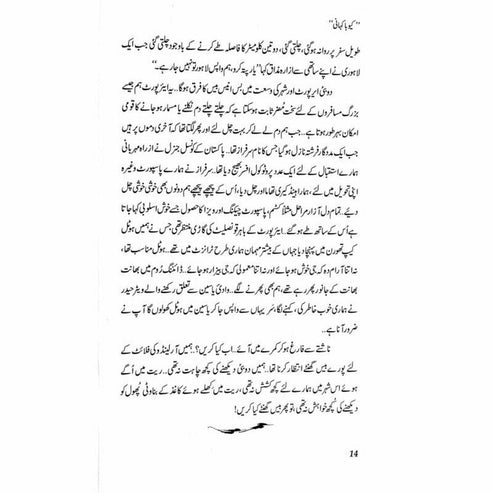 ”کیوبا کہانی“
طویل سفر پر روانہ ہو گئی، چلتی گئی، چلتی گئی، دو تین کلومیٹر کا فاصلہ طے کرنے کے باوجود چلتی گئی جب ایک
لاہوری نے اپنے ساتھی سے ازارہ مذاق کہا ”یار پتہ کرو، ہم واپس لاہور تو نہیں جا رہے۔“
دوبئی ایئرپورٹ اور شہر کی وسعت میں بس انیس بیس کا فرق ہوگا۔ یہ ایئرپورٹ ہم جیسے
بزرگ مسافروں کے لئے سخت مُضر ثابت ہو سکتا ہے کہ چلتے چلتے دم نکلنے یا مسمار ہو جانے کا قومی
امکان بہر طور ہوتا ہے... جب ہم دم لے لے کر بہت چل لئے اور پھر لگتا تھا کہ آخری دموں پر ہیں
جب ایک مددگار فرشتہ نازل ہو گیا جس کا نام سرفراز تھا... پاکستان کے کونسل جنرل نے ازراہ مہربانی
ہمارے استقبال کے لئے ایک عدد پروٹوکول افسر بھیج دیا تھا.. سرفراز نے ہمارے پاسپورٹ وغیرہ
اپنی تحویل میں لئے، ہمارا ہینڈ کیری تھاما اور چل دیا، اُس کے پیچھے پیچھے ہم دونوں بھی خوشی خوشی چل
دیئے... تمام دل آزار مراحل مثلاً کسٹم، پاسپورٹ چیکنگ اور ویزا کا حصول جسے خوش اسلوبی کہا جاتا
ہے اُس کے ساتھ طے ہو گئے۔ ایئرپورٹ کے باہر قونصلیٹ کی گاڑی منتظر تھی جس نے ہمیں ہوٹل
کیپ تھورن میں پہنچا دیا جہاں کے بیشتر مہمان ہماری طرح ٹرانزٹ میں تھے.. ہوٹل مناسب تھا،
نہ اتنا آرام دہ کہ جی خوش ہو جائے اور نہ اتنا معمولی کہ جی بیزار ہو جائے.. ڈائننگ رُوم میں بھانت
بھانت کے جانور پھر رہے تھے، ہم بھی پھرنے لگے.. وادیٔ یاسین سے تعلق رکھنے والے ویٹر حیدر
نے ہماری خوب خاطر کی، کہنے لگا، سَر یہاں سے واپس جا کر یاسین میں ہوٹل کھولوں گا آپ نے
ضرور آنا ہے..
ناشتے سے فارغ ہو کر کمرے میں آئے.. اب کیا کریں؟.. ہمیں آرلینڈو کی فلائٹ کے
لئے پورے بیس گھنٹے انتظار کرنا تھا.. ہمیں دوبئی دیکھنے کی کچھ چاہت نہ تھی.. ریت میں اُگے
ہوئے اس شہر میں ہمارے لئے کچھ کشش نہ تھی، ریت میں کھلے ہوئے کاغذ کے بناوٹی پھول کو
دیکھنے کی کچھ خواہش نہ تھی، تو پھر بیس گھنٹے کیا کریں!
14